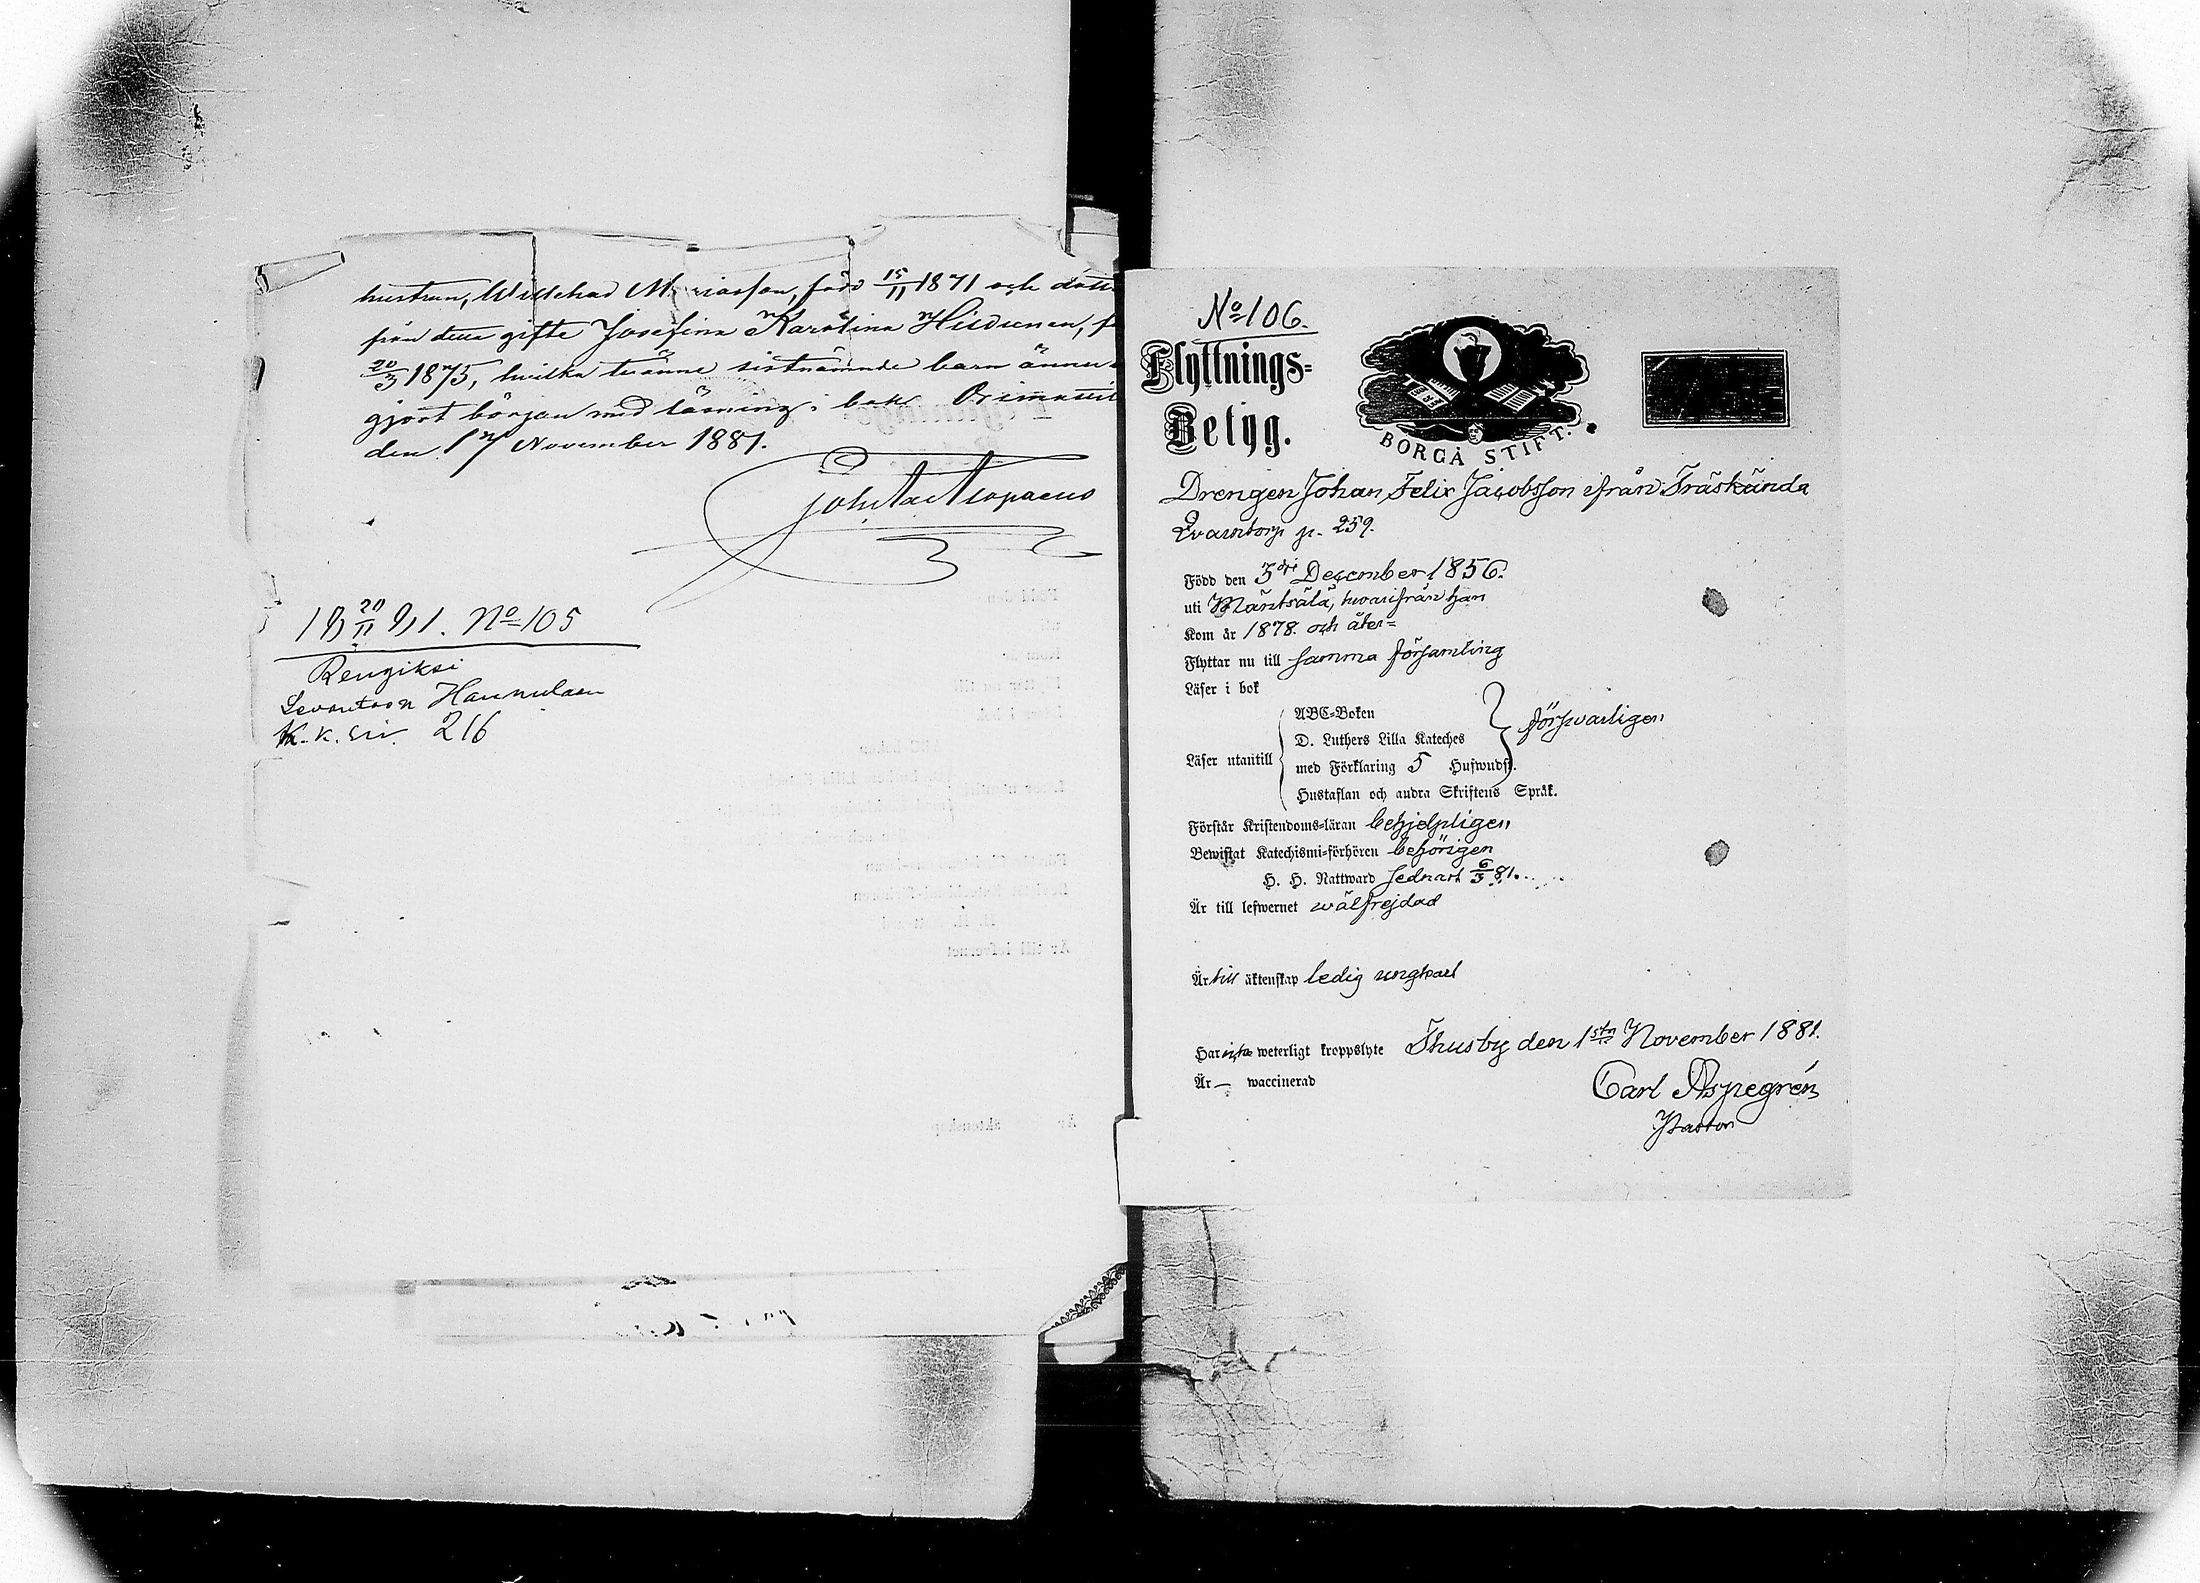 hustrun, Willehad M iasson, född 15/11 1871 och dott
från detta gifte Josefina Karolina Hildrenen, f
20/3 1875, hvilka tvänne sistnämnde barn ännu
gjort början med läsning i bok Orimattil
den 17 November 1881.
Joh Isac Alopaeus
18 20/11 81. No 105
Rengiksi
Levantoon Hannulaan
K. k. siv. 216
No 106.
Flyttnings-
Betyg.
BORGÅ STIFT.
Drengen Johan Felix Jacobsson ifrån Träskända
Qvarntorp p. 259.
Född den 3dje December 1856.
uti Mäntsälä, hvarifrån han
Kom år 1878. och åter=
Flyttar nu till samma församling
Läser i bok
ABC-Boken
D. Luthers Lilla Kateches
försvarligen
Läser utantill
med Förklaring 5 Hufwudst.
Hustaflan och andra Skriftens Språk.
Förstår Kristendoms-läran behjelpligen
Bewistat Katechismi-förhören behörigen
H. H. Nattward sednast 6/3 81.
Är till lefwernet wälfrejdad
Är till äktenskap ledig ungkarl
Har icke weterligt kroppslyte Thusby den 1sta November 1881.
Är — waccinerad
Carl Aspegrén
Pastor